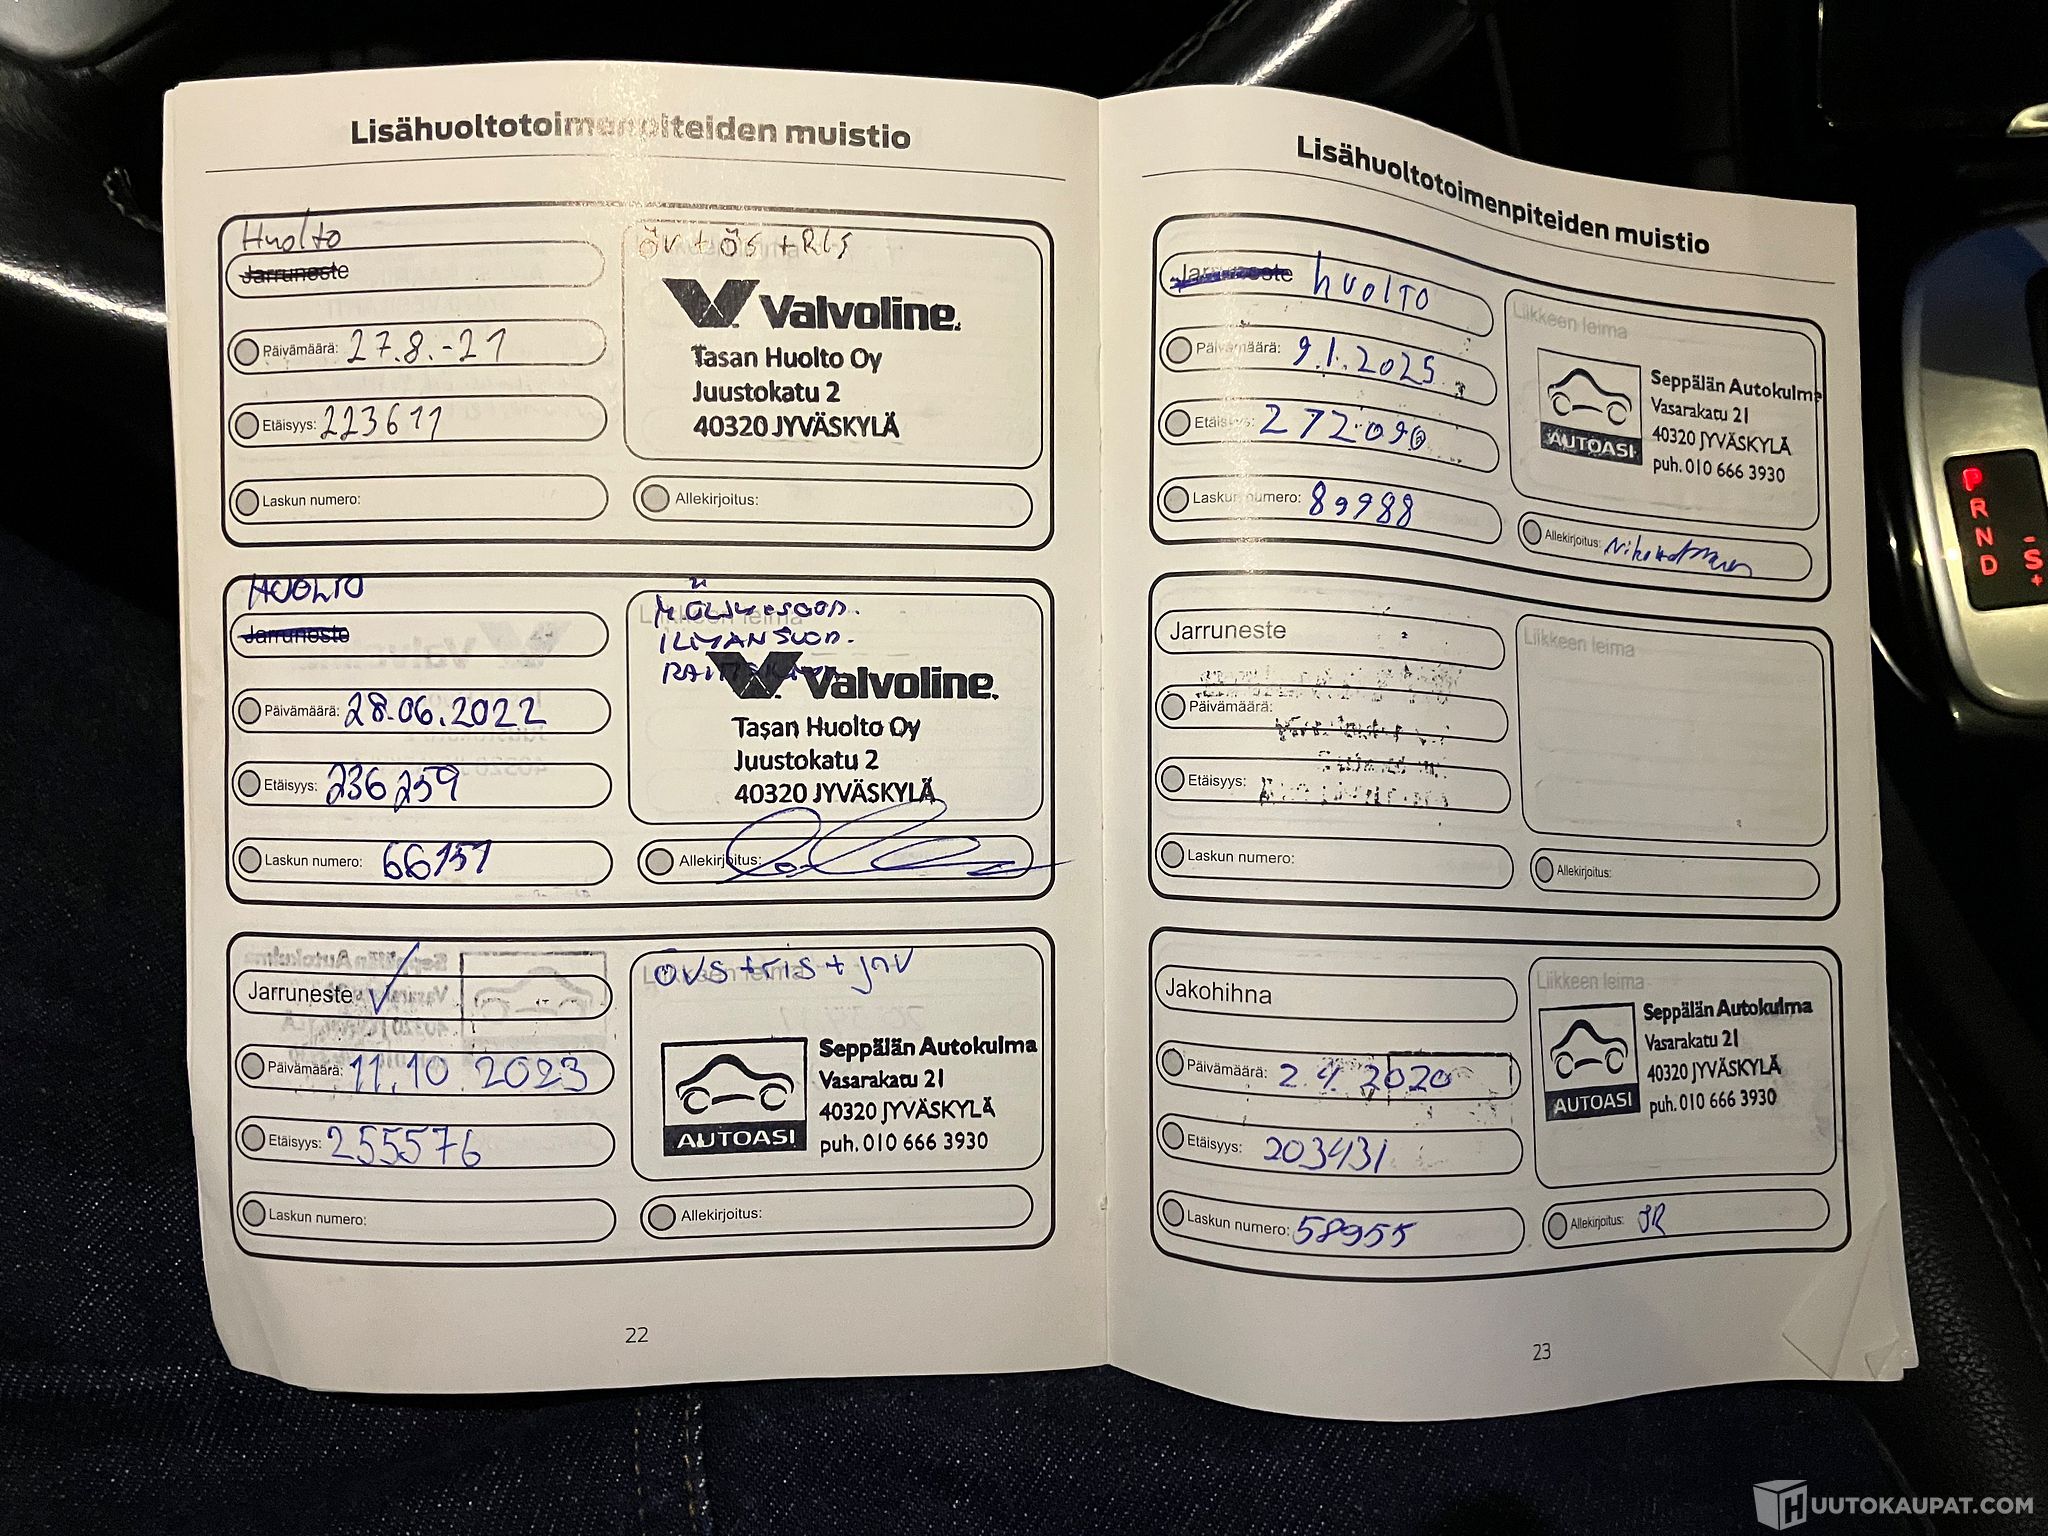 Lisähuoltotoimenpiteiden muistio
Huolto
Jarruneste
öv + ös + RLS
Päivämäärä: 27.8.-21
Etäisyys: 223611
Laskun numero:
Valvoline
Tasan Huolto Oy
Juustokatu 2
40320 JYVÄSKYLÄ
Allekirjoitus:
HUOLTO
Jarruneste
Päivämäärä: 28.06.2022
Etäisyys: 236259
Laskun numero: 66151
Liikkeen leima
ILMANSUOD.
Valvoline
Tasan Huolto Oy
Juustokatu 2
40320 JYVÄSKYLÄ
Allekirjoitus:
Jarruneste ✓
Päivämäärä: 11.10.2023
Etäisyys: 255576
Laskun numero:
Liikkeen leima
övs + ris + jnv
AUTOASI
Seppälän Autokulma
Vasarakatu 21
40320 JYVÄSKYLÄ
puh. 010 666 3930
Allekirjoitus:
22
Lisähuoltotoimenpiteiden muistio
Jarruneste huolto
Päivämäärä: 9.1.2025
Etäisyys: 272090
Laskun numero: 89988
Liikkeen leima
AUTOASI
Seppälän Autokulma
Vasarakatu 21
40320 JYVÄSKYLÄ
puh. 010 666 3930
Allekirjoitus:
Jarruneste
Päivämäärä:
Etäisyys:
Laskun numero:
Liikkeen leima
Allekirjoitus:
Jakohihna
Päivämäärä: 2.4.2020
Etäisyys: 203431
Laskun numero: 58955
Liikkeen leima
AUTOASI
Seppälän Autokulma
Vasarakatu 21
40320 JYVÄSKYLÄ
puh. 010 666 3930
Allekirjoitus: JR
23
P
R
N
D
-
S
+
HUUTOKAUPAT.COM